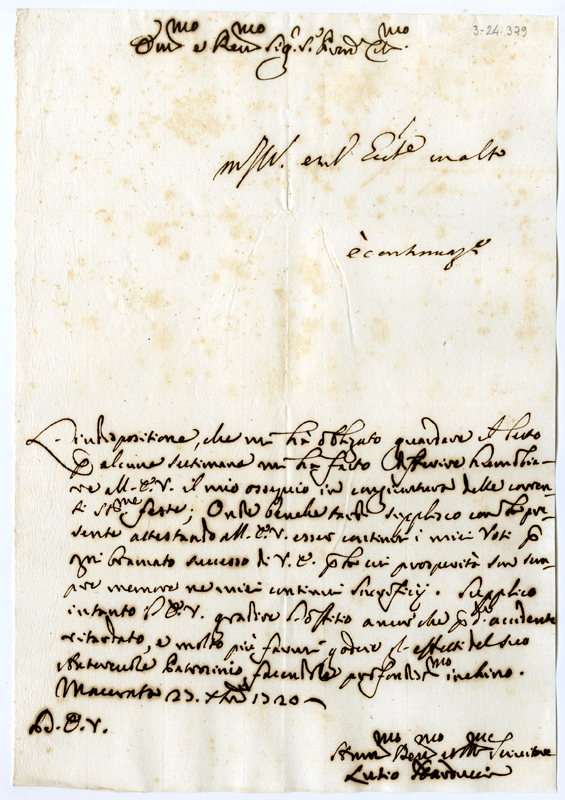 3-24.379
Em.mo e Rev.mo Sig.r S.r Pron Col.mo
molto
L'indispositione, che m'ha obligato guardare il letto
p alcune settimane m'ha fatto differire
re all'E.V. il mio ossequio in congiuntura delle corren-
ti S.me feste; Onde benche tardi supplisco con la pre-
sente attestando all'E.V. esser continui i miei Voti p
ogni bramato successo di V.E. p la cui prosperità son sem-
pre memore ne miei continui Sacrificij. Supplico
intanto l'E.V. gradire l'offitio ancor che p accidente
ritardato, e molto più farmi godere gl'effetti del suo
Autorevole Patrocinio, facendole profondis.mo inchino.
Macerata 23 Xbre 1720
D.E.V.
Hum.mo Dev.mo et Servitore
Lutio